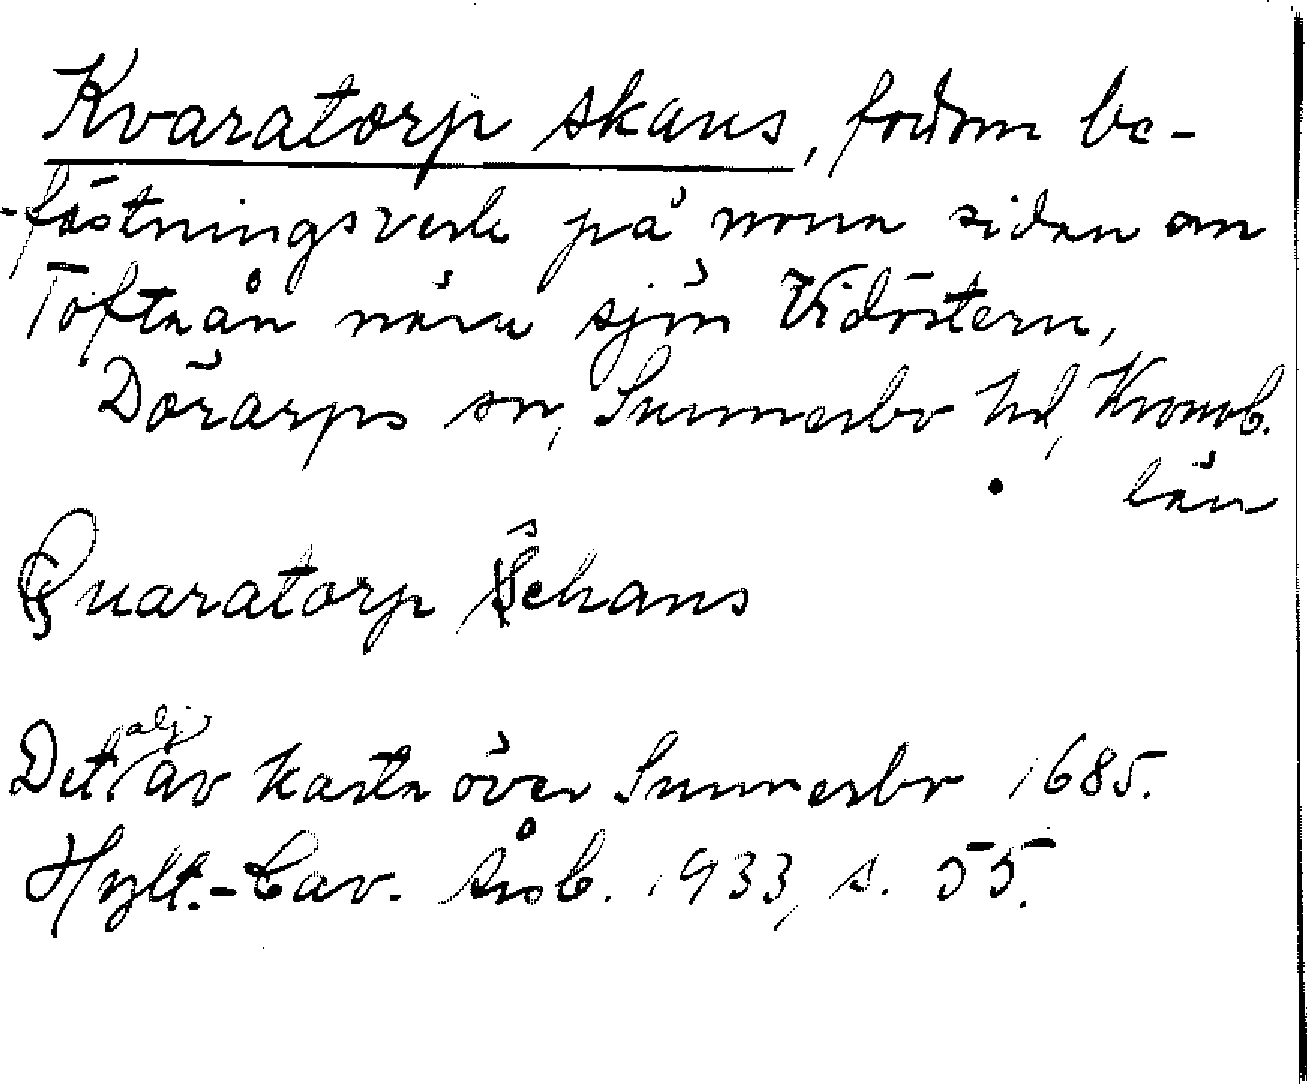 Kvaratorp skans, fordom be-
-fästningsverk på norra sidan om
Toftaån nära sjön Vidöstern,
Dörarps sn, Sunnerbo hd, Kronob.
län
Quaratorp Schans
Detalj av karta över Sunnerbo 1685.
Hylt.-Cav. årsb. 1933, s. 55.